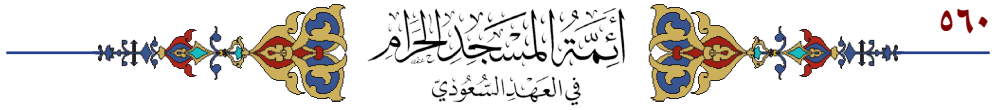 ٥٦٠
أَئِمَّةُ المَسْجِدِ الحَرَامِ
في العَهْدِ السُّعُوْدِيّ